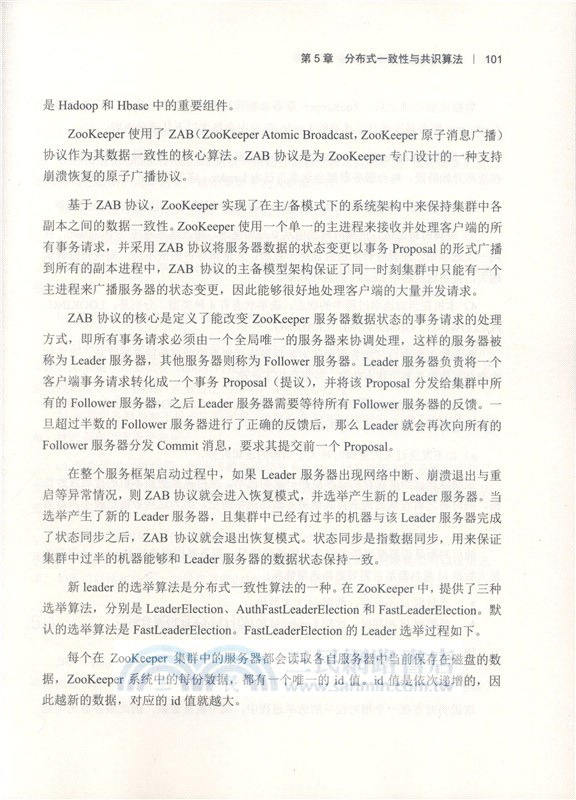 第 5 章 分布式一致性与共识算法 | 101
是 Hadoop 和 Hbase 中的重要组件。
ZooKeeper 使用了 ZAB（ZooKeeper Atomic Broadcast, ZooKeeper 原子消息广播）
协议作为其数据一致性的核心算法。ZAB 协议是为 ZooKeeper 专门设计的一种支持
崩溃恢复的原子广播协议。
基于 ZAB 协议，ZooKeeper 实现了在主/备模式下的系统架构中来保持集群中各
副本之间的数据一致性。ZooKeeper 使用一个单一的主进程来接收并处理客户端的所
有事务请求，并采用 ZAB 协议将服务器数据的状态变更以事务 Proposal 的形式广播
到所有的副本进程中，ZAB 协议的主备模型架构保证了同一时刻集群中只能有一个
主进程来广播服务器的状态变更，因此能够很好地处理客户端的大量并发请求。
ZAB 协议的核心是定义了能改变 ZooKeeper 服务器数据状态的事务请求的处理
方式，即所有事务请求必须由一个全局唯一的服务器来协调处理，这样的服务器被
称为 Leader 服务器，其他服务器则称为 Follower 服务器。Leader 服务器负责将一个
客户端事务请求转化成一个事务 Proposal（提议），并将该 Proposal 分发给集群中所
有的 Follower 服务器，之后 Leader 服务器需要等待所有 Follower 服务器的反馈。一
旦超过半数的 Follower 服务器进行了正确的反馈后，那么 Leader 就会再次向所有的
Follower 服务器分发 Commit 消息，要求其提交前一个 Proposal。
在整个服务框架启动过程中，如果 Leader 服务器出现网络中断、崩溃退出与重
启等异常情况，则 ZAB 协议就会进入恢复模式，并选举产生新的 Leader 服务器。当
选举产生了新的 Leader 服务器，且集群中已经有过半的机器与该 Leader 服务器完成
了状态同步之后，ZAB 协议就会退出恢复模式。状态同步是指数据同步，用来保证
集群中过半的机器能够和 Leader 服务器的数据状态保持一致。
新 leader 的选举算法是分布式一致性算法的一种。在 ZooKeeper 中，提供了三种
选举算法，分别是 LeaderElection、AuthFastLeaderElection 和 FastLeaderElection。默
认的选举算法是 FastLeaderElection。FastLeaderElection 的 Leader 选举过程如下。
每个在 ZooKeeper 集群中的服务器都会读取各自服务器中当前保存在磁盘的数
据，ZooKeeper 系统中的每份数据，都有一个唯一的 id 值。id 值是依次递增的，因
此越新的数据，对应的 id 值就越大。
www.sanmin.com.tw